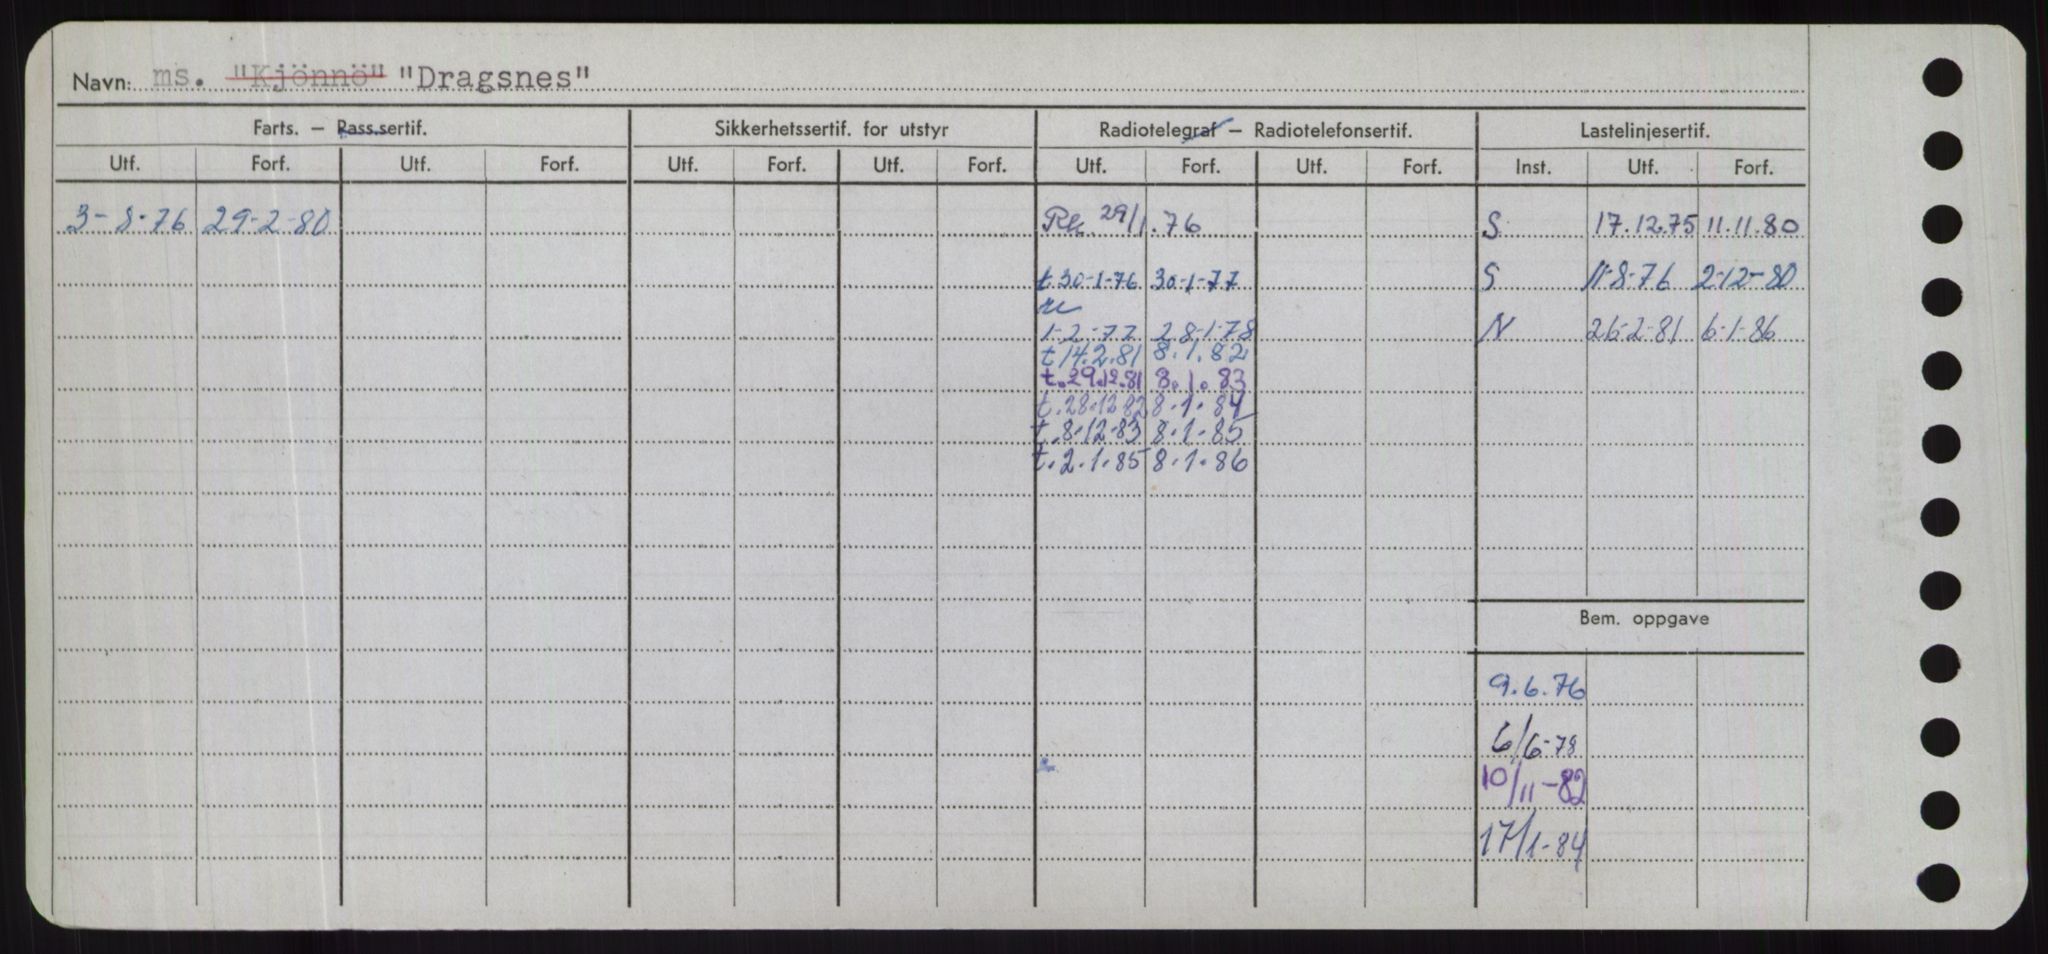 Navn: ms. "Kjönnö" "Dragsnes"
Farts. — Pass.sertif. Sikkerhetssertif. for utstyr Radiotelegraf — Radiotelefonsertif. Lastelinjesertif.
Utf. Forf. Utf. Forf. Utf. Forf. Utf. Forf. Utf. Forf. Utf. Forf. Inst. Utf. Forf.
3-8-76 29-2-80 29/1.76 S. 17.12.75 11.11.80
t.30-1-76 30-1-77 S 11-8-76 2-12-80
1-2-77 28-1-78 N 26-2-81 6-1-86
t 14.2.81 8.1.82
t.29.12.81 8.1.83
t.28.12.82 8.1.84
t.8.12.83 8.1.85
t.2.1.85 8.1.86
Bem. oppgave
9.6.76
6/6-78
10/11-82
17/1-84